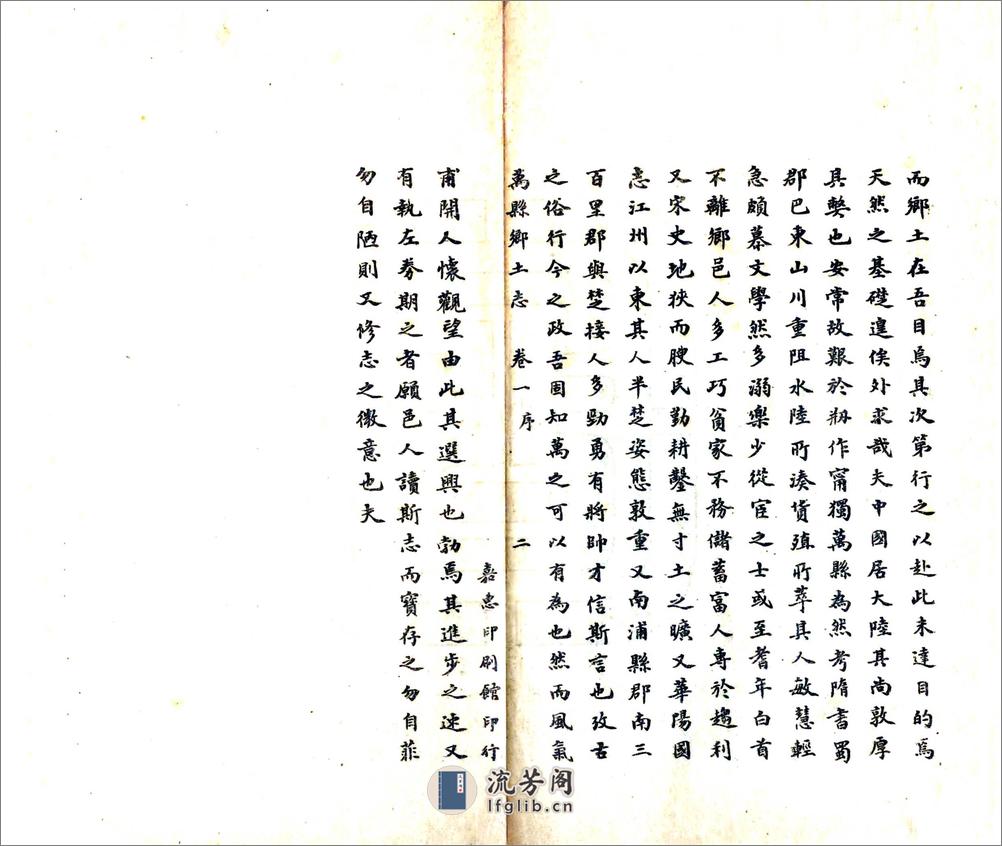 而鄉土在吾目爲其次第行之以赴此未達目的焉
天然之基礎遑俟外求哉夫中國居大陸其尚敦厚
具弊也安常故艱於剏作甯獨萬縣為然考隋書蜀
郡巴東山川重阻水陸所湊貨殖所萃具人敏慧輕
急頗慕文學然多溺樂少從宦之士或至耆年白首
不離鄉邑人多工巧貧家不務儲蓄富人專於趨利
又宋史地狹而腴民勤耕鑿無寸土之曠又華陽國
志江州以東其人半楚姿態敦重又南浦縣郡南三
百里郡與楚接人多勁勇有將帥才信斯言也攷古
之俗行今之政吾固知萬之可以有為也然而風氣
萬縣鄉土志 卷一 序 二
嘉惠印刷館印行
甫開人懷觀望由此其選興也勃焉其進步之速又
有執左券期之者願邑人讀斯志而寶存之勿自菲
勿自陋則又修志之微意也夫
流芳阁
lfglib.cn